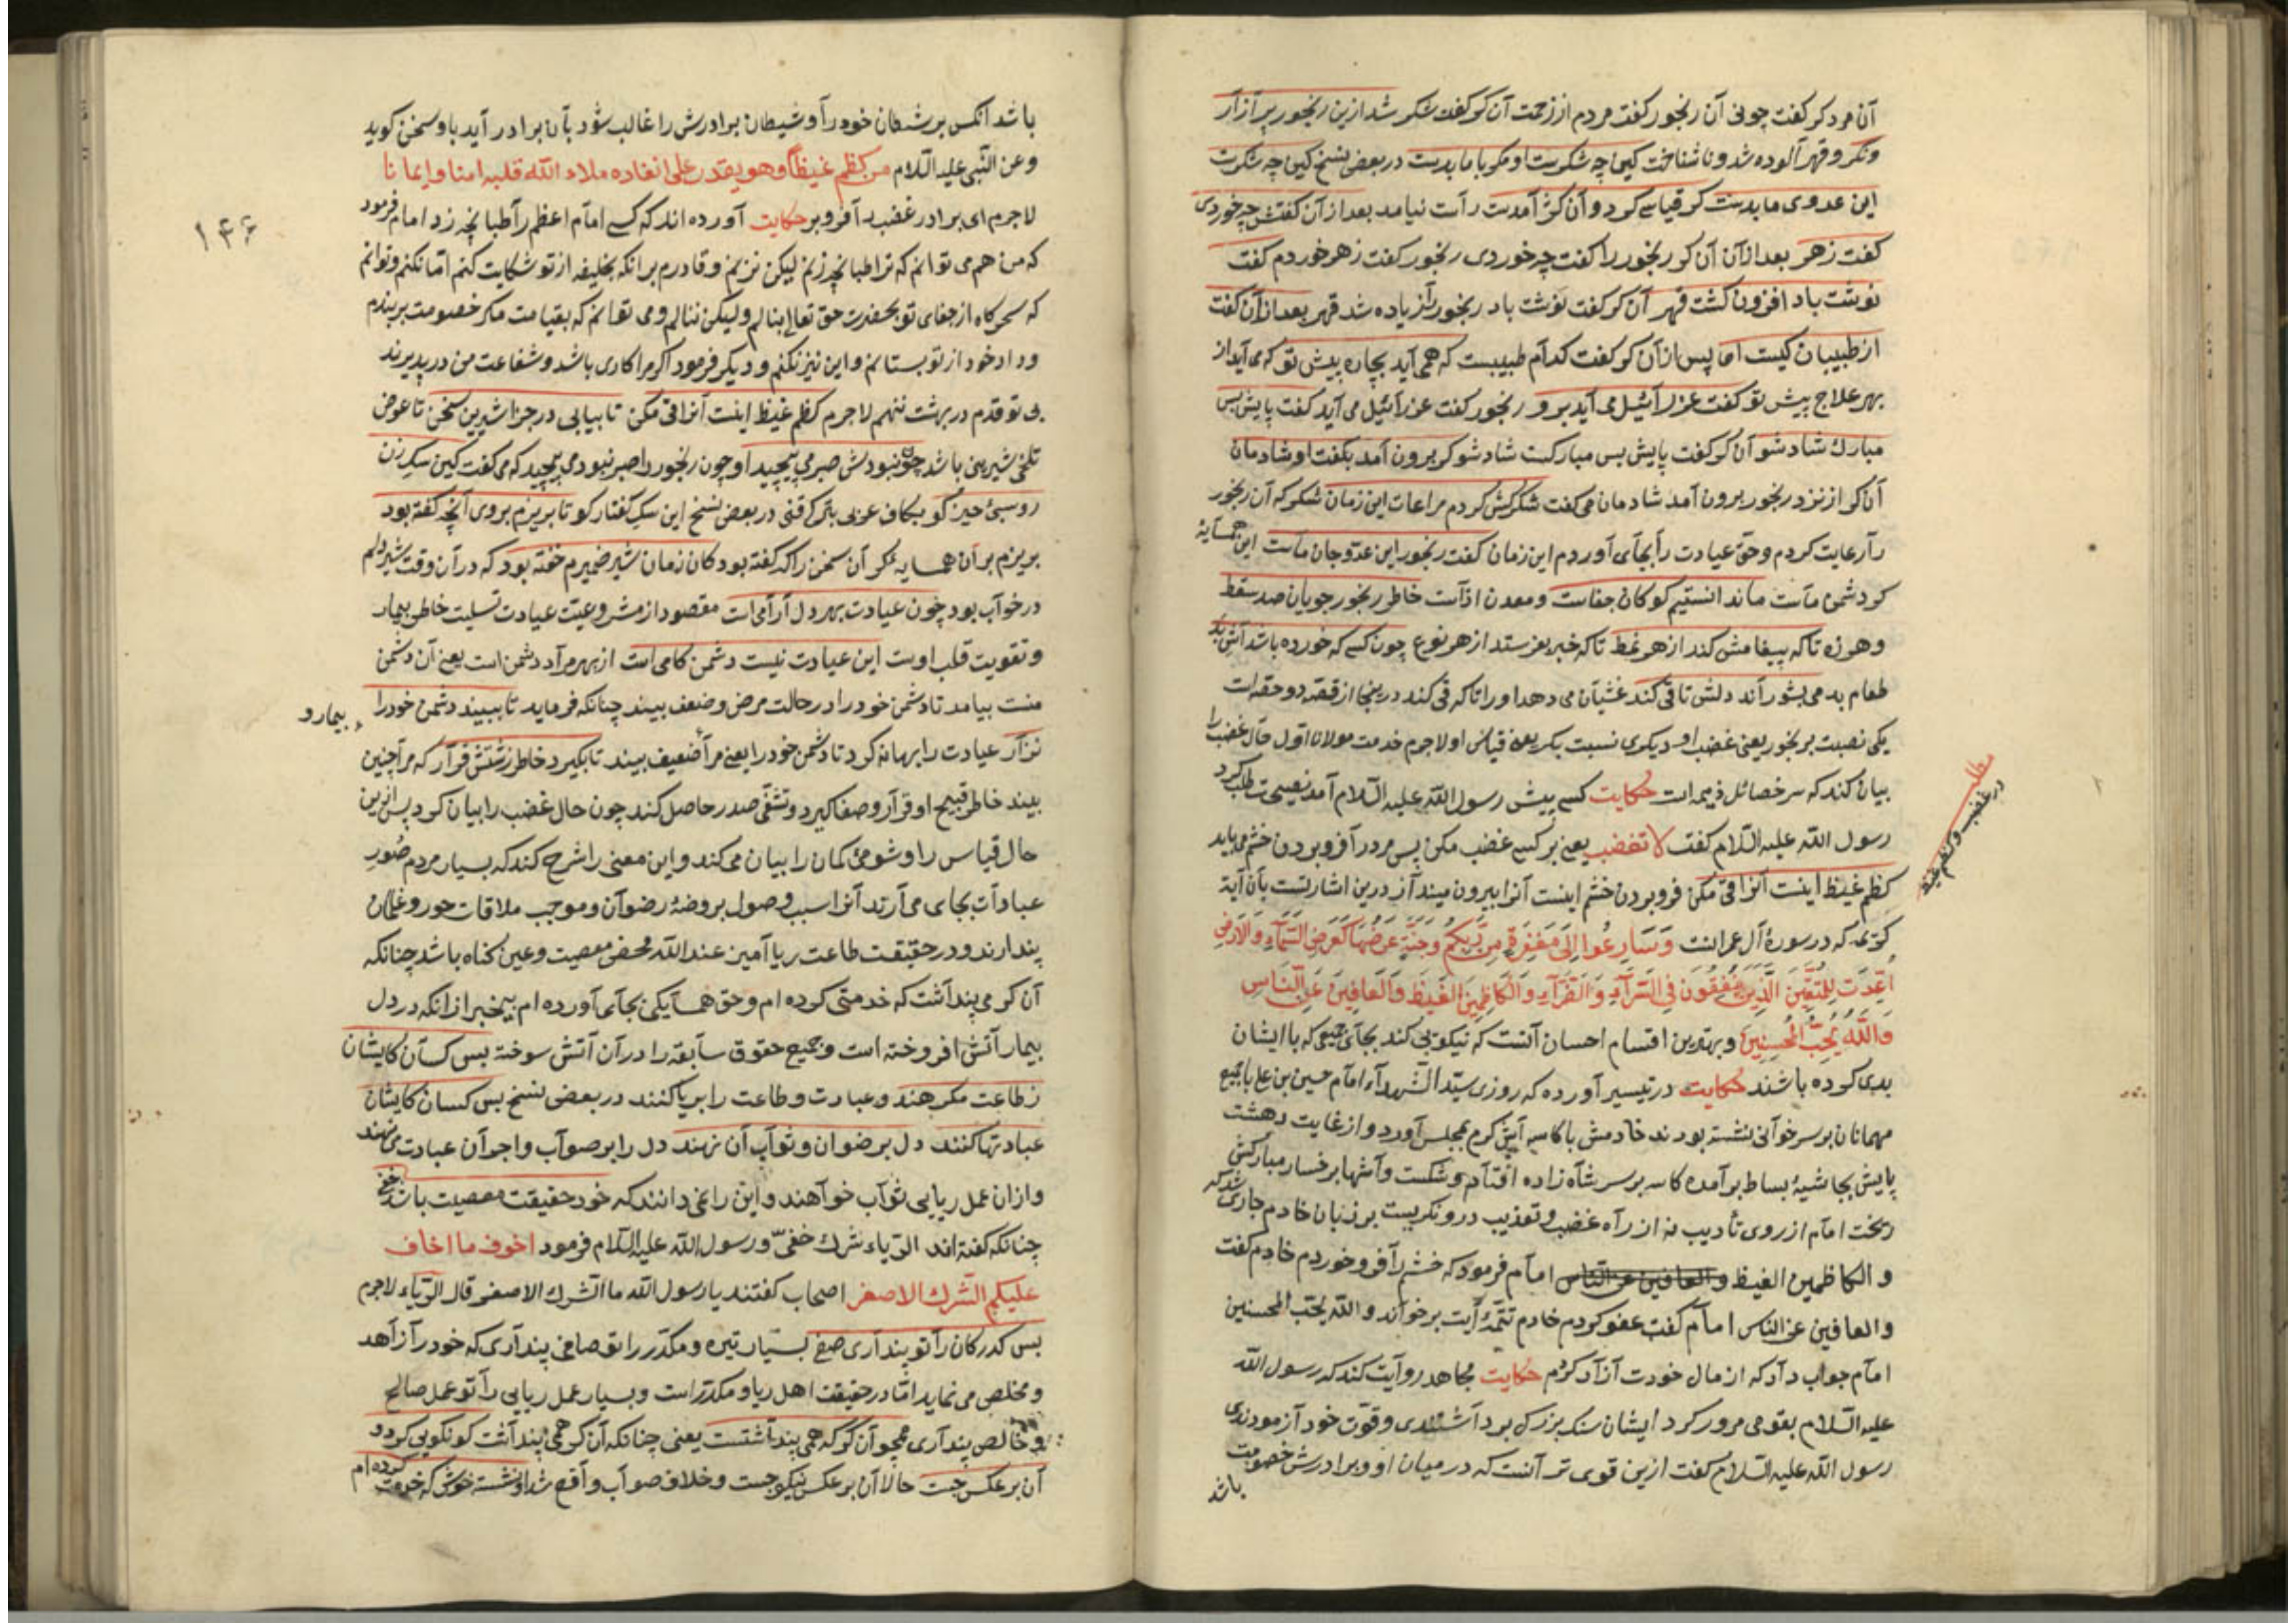 آن مرد کر کفت چونی آن رنجور کفت مردم از زحمت آن کر کفت شکر شد ازین رنجور پر آزار
ونکر و قهر آلوده شد و ناشناخت کین چه شکرست او مکر با ما بدست در بعض نسخ کین چه شکرست
این عدوی ما بدست کر قیاسی کرد و آن کژ آمدست راست نیامد بعد از آن کفتش چه خوردی
کفت زهر بعد از آن آن کر رنجور را کفت چه خوردی رنجور کفت زهر خوردم کفت
نوشت باد افزون کشت قهر آن کر کفت نوشت باد رنجور را زیاده شد قهر بعد از آن کفت
از طبیبان کیست او پس از آن کر کفت کدام طبیبست که همی آید بچاره پیش تو که می آید از
بهر علاج پیش تو کفت عزرائیل می آید برو رنجور کفت عزرائیل می آید کفت پایش بس
مبارک شاد شو آن کر کفت پایش بس مبارکست شاد شو کر برون آمد بکفت او شادمان
آن کر از نزد رنجور برون آمد شادمان می کفت شکر کش کردم مراعات این زمان شکر که آن رنجور
را رعایت کردم و حق عیادت را بجای آوردم این زمان کفت رنجور این عدو جان ماست این همسایه
کر دشمن ماست ما ندانستیم کو کان جفاست و معدن اذاست خاطر رنجور جویان صد سقط
وهرزه تا که پیغامش کند از هر نمط تا که خبر بفرستد از هر نوع چون کسی که خورده باشد آش بد
طعام بد می بشوراند دلش تا قی کند غثیان می دهد او را تا که قی کند درینجا از قصه دو حقه است
یکی نصبت بر رنجور یعنی غضب او دیکری نسبت بکر یعنی قیاس او لاجرم خدمت مولانا اول حال غضب را
بیان کند که سر خصائل ذمیمه است حکایت کسی پیش رسول الله علیه السلام آمد نصیحت طلب کرد
رسول الله علیه السلام کفت لا تغضب یعنی بر کسی غضب مکن پس مرد را فرو بردن خشم می باید
مطلب
در غضب و کظم غیظ
کظم غیظ اینست آنرا قی مکن فرو بردن خشم اینست آنرا بیرون میندآز درین اشارتست بآن آیه
کری که در سورۀ آل عمرانست وَسَارِعُوا اِلَی مَغْفِرَةٍ مِن رَّبِّکُم وَجَنَّةٍ عَرْضُهَا کَعَرْضِ السَّمَآءِ وَالْاَرْضِ
اُعِدَّت لِلْمُتَّقِینَ الَّذِینَ یُنْفِقُونَ فِی السَّرَّآءِ وَالضَّرَّآءِ وَالْکَاظِمِینَ الْغَیْظَ وَالْعَافِینَ عَنِ النَّاسِ
وَاللّٰهُ یُحِبُّ الْمُحْسِنِینَ و بهترین اقسام احسان آنست که نیکویی کند بجای جمعی که با ایشان
بدی کرده باشند حکایت در تیسیر آورده که روزی سید الشهداء امام حسین بن علی با جمع
مهمانان بر سر خوانی نشسته بودند خادمش با کاسه آش کرم بمجلس آورد و از غایت دهشت
پایش بحاشیۀ بساط برآمده کاسه بر سر شاه زاده افتاد و شکست و آشها بر خسار مبارکش
ریخت امام از روی تأدیب نه از راه غضب و تعذیب درو نکریست بر زبان خادم جاری شد که
و الکاظمین الغیظ و العافین عن الناس امام فرمود که خشم را فرو خوردم خادم کفت
والعافین عن الناس امام کفت عفو کردم خادم تتمۀ آیت بر خواند و الله یحب المحسنین
امام جواب داد که از مال خودت آزاد کردم حکایت مجاهد روایت کند که رسول الله
علیه السلام بقومی مرور کرد ایشان سنک بزرک برداشتندی و قوّت خود آزمودندی
رسول الله علیه السلام کفت ازین قوی تر آنست که در میان او و برادرش خصومت
باشد
۱۴۶
باشد آنکس بر شیطان خود را و شیطان برادرش را غالب شود بآن برادر آید با و سخن کوید
وعن النبی علیه السلام من کظم غیظا وهو یقدر علی انفاده ملاء الله قلبه امنا و ایمانا
لاجرم ای برادر غضب را فرو بر حکایت آورده اند که کسی امام اعظم را طبانچه زد امام فرمود
که من هم می توانم که ترا طبانچه زنم لیکن نزنم و قادرم برانکه بخلیفه از تو شکایت کنم اما نکنم و توانم
که سحرکاه از جفای تو بحضرت حق تعالی بنالم ولیکن ننالم و می توانم که بقیامت مکر خصومت بربندم
و داد خود از تو بستانم و این نیز نکنم و دیکر فرمود اکر مرا کاری باشد و شفاعت من در پذیرند
بی تو قدم در بهشت ننهم لاجرم کظم غیظ اینست آنرا قی مکن تا بیابی در جزا شیرین سخن تا عوض
تلخی شیرینی باشد چون نبودش صبر می پیچید او چون رنجور را صبر نبود می پیچید که می کفت کین سک زن
روسبئ حیز کو بکاف عربی باتر کرفتی در بعض نسخ این سک کفتار کو تا بریزم بروی آنچه کفته بود
بریزم بر آن همسایه مکر آن سخن را که کفته بود کان زمان شیر ضمیرم خفته بود که در آن وقت شیر دلم
در خواب بود چون عیادت بهر دل آرامی است مقصود از مشروعیت عیادت تسلیت خاطر بیمار
و تقویت قلب اوست این عیادت نیست دشمن کامی است از بهر مراد دشمن است یعنی آن دشمن
منست بیامد تا دشمن خود را در حالت مرض و ضعف بیند چنانکه فرماید تا ببیند دشمن خود را
بیمار و
نزار عیادت را بهانه کرد تا دشمن خود را یعنی مرا ضعیف بیند تا بکیرد خاطر زشتش قرار که مرا چنین
بیند خاطر قبیح او قرار و صفا کیرد و تشفّی صدر حاصل کند چون حال غضب را بیان کرد پس ازین
حال قیاس را و شومئ کمان را بیان می کند و این معنی را شرح کند که بسیار مردم صُورِ
عبادات بجای می آرند آنرا سبب وصول بروضۀ رضوان و موجب ملاقات حور و غلمان
پندارند و در حقیقت طاعت ریا آمین عند الله محض معصیت و عین کناه باشد چنانکه
آن کر می پنداشت که خدمتی کرده ام و حق همسایکی بجای آورده ام بیخبر از انکه در دل
بیمار آتش افروخته است و جمیع حقوق سابقه را در آن آتش سوخته بس کسان کایشان
ز طاعت مکرهند و عبادت و طاعت را بریا کنند در بعض نسخ بس کسان کایشان
عبادتها کنند دل بر ضوان و ثواب آن نهند دل را بر صواب و اجر آن عبادت می نهند
و ازان عمل ریایی ثواب خواهند و این را نمی دانند که خود حقیقت معصیت باشد خفی
چنانکه کفته اند الریاء شرک خفیّ و رسول الله علیه السلام فرمود اخوف ما اخاف
علیکم الشرک الاصغر اصحاب کفتند یا رسول الله ما الشرک الاصغر قال الریاء لاجرم
بس کدر کان را تو پنداری صفی بسیار تیره و مکدّر را تو صافی پنداری که خود را زاهد
و مخلص می نماید امّا در حقیقت اهل ریا و مکدّر است و بسیار عمل ریایی را تو عمل صالح
و خالص پنداری همچو آن کر که همی پنداشتست یعنی چنانکه آن کر همی پنداشت کو نکویی کرد و
آن بر عکس جست حالا آن بر عکس نیکو جست و خلاف صواب واقع شد او نشسته خوش که خدمت کرده ام